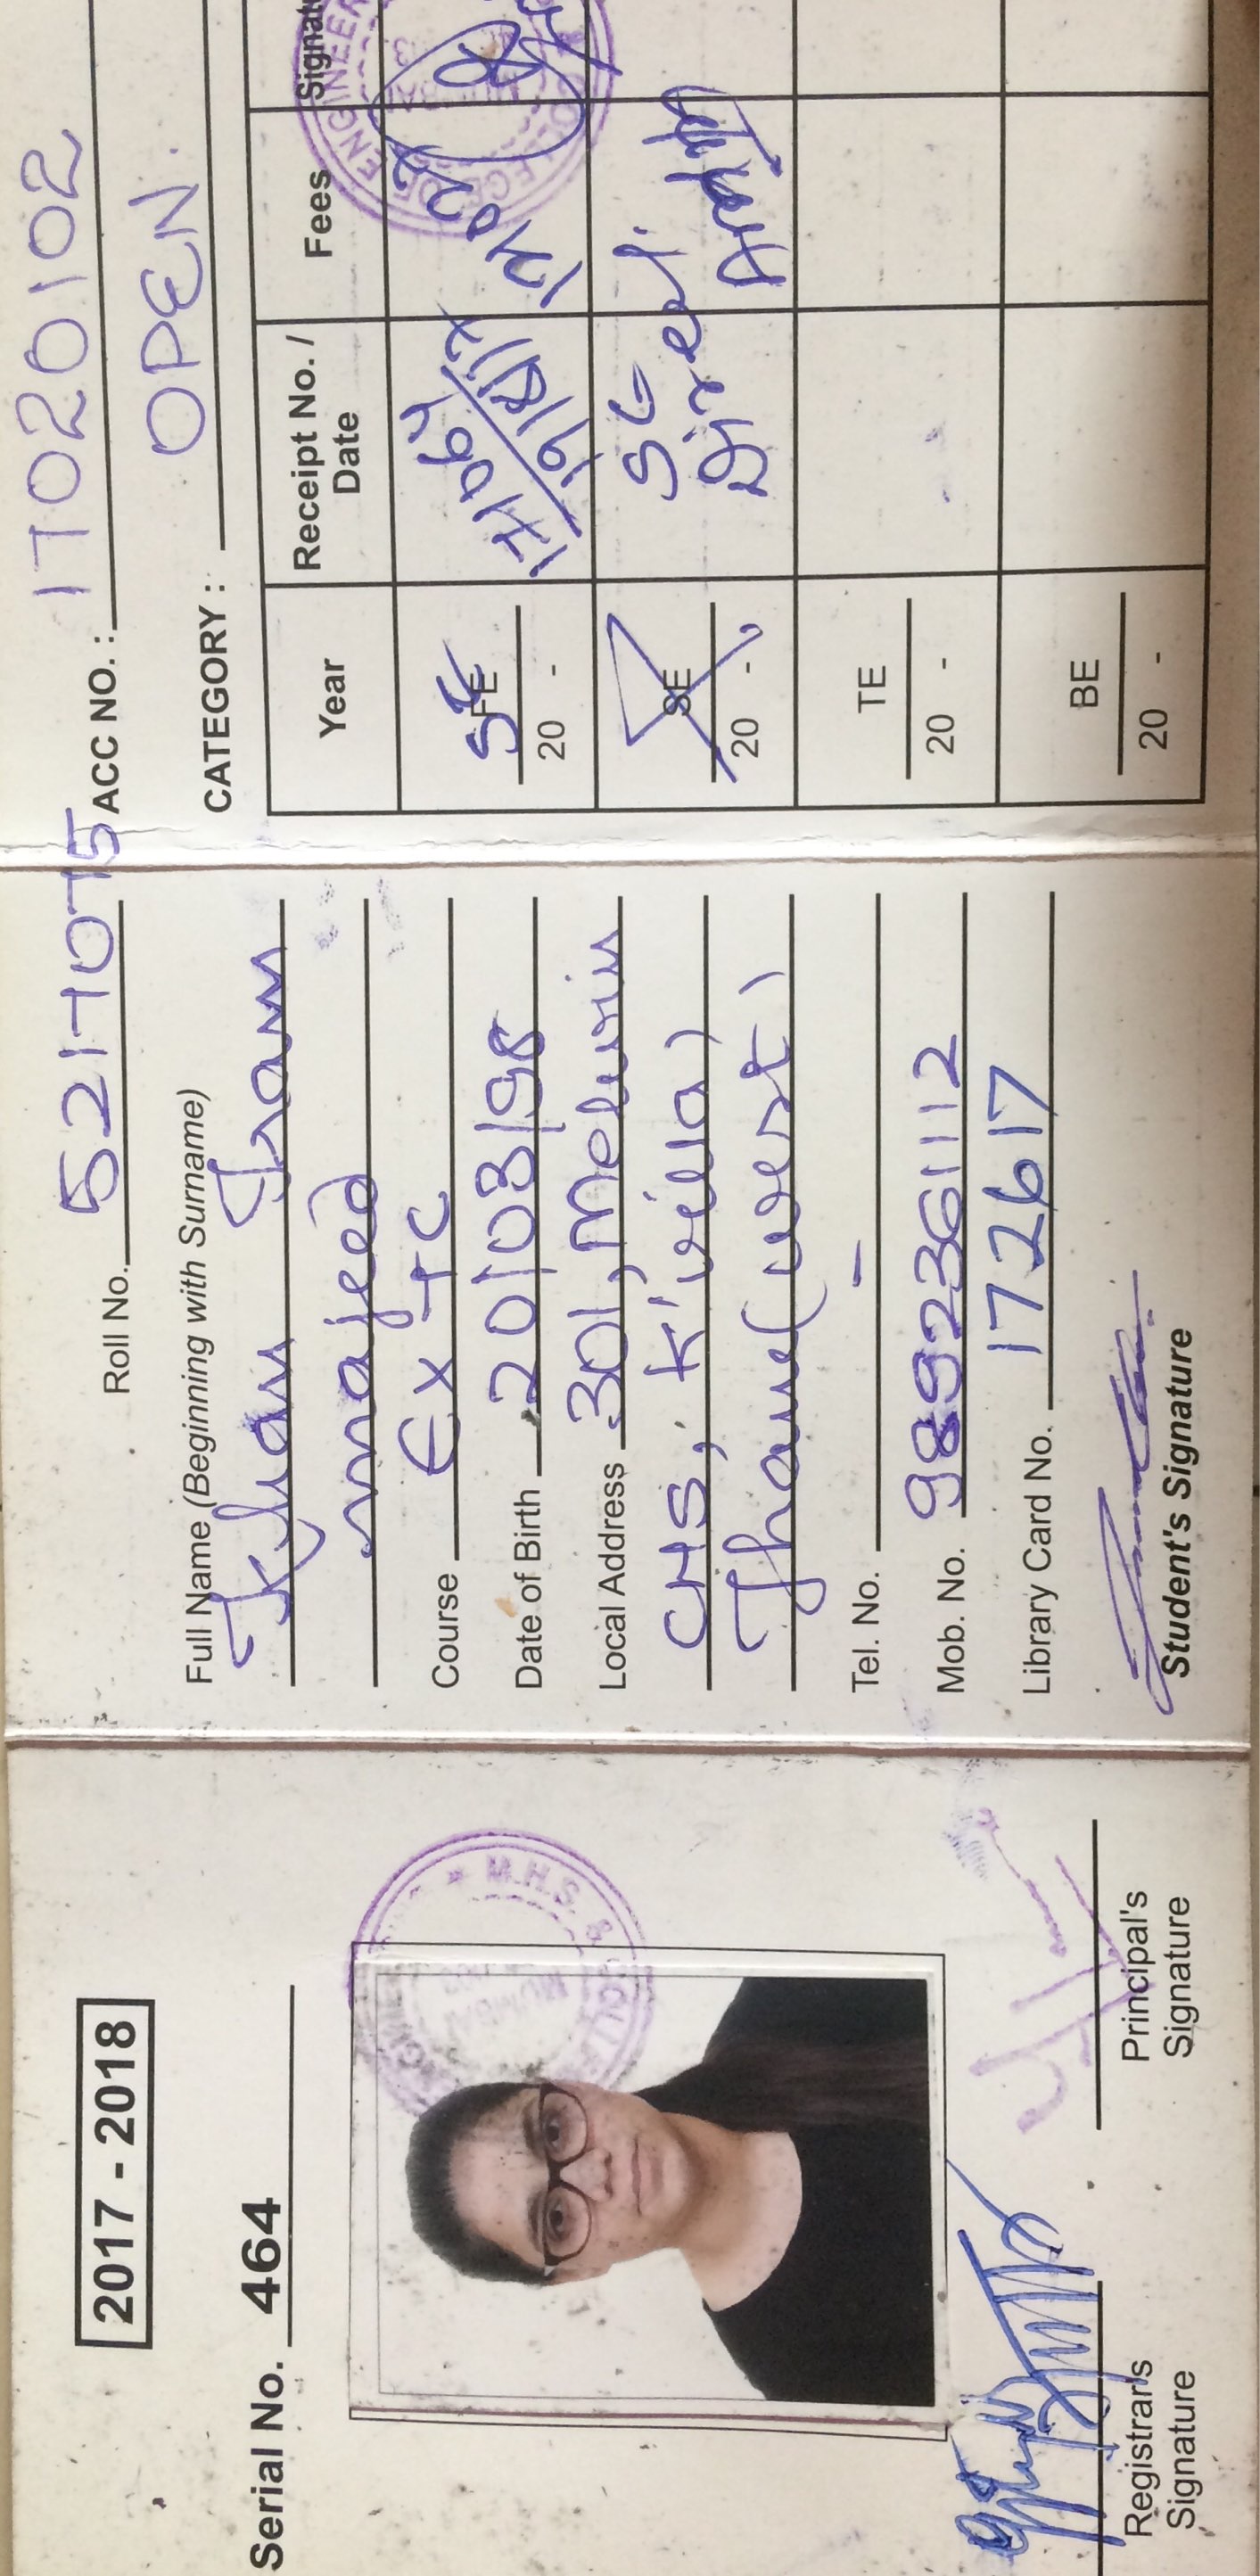 2017 - 2018
Serial No. 464
M.H.S.
Registrar's
Signature
Principal's
Signature
Roll No. 5217075
Full Name (Beginning with Surname)
Khan Iram
majeed
Course EXTC
Date of Birth 20/03/98
Local Address 301, Melwin
CHS, K'villa,
Thane (west)
Tel. No. -
Mob. No. 9892361112
Library Card No. 172617
Student's Signature
ACC NO. : 17020102
CATEGORY : OPEN.
Year Receipt No. / Date Fees Signat
SE FE 171064
20 - 19/8/17
SE SE
20 - Direct.
TE
20 -
BE
20 -
COLLEGE OF ENGINEER